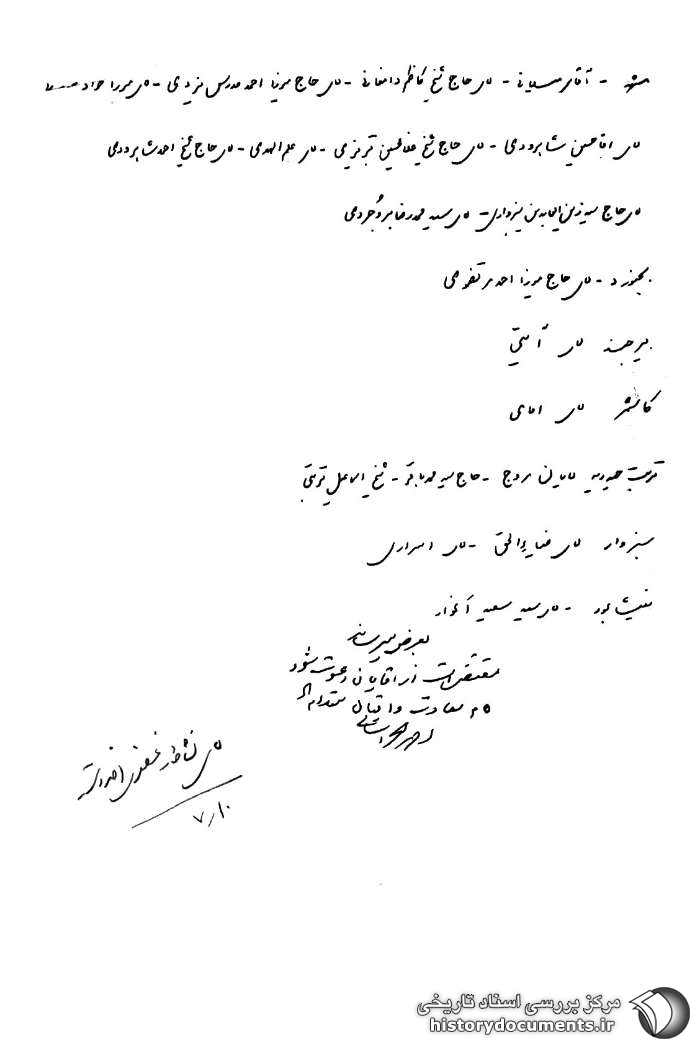 مشهد - آقای میلانی - آقای حاج شیخ کاظم دامغانی - آقای حاج میرزا احمد مدرس یزدی - آقای میرزا جواد
آقای آقا حسین شاهرودی - آقای حاج شیخ غلامحسین تبریزی - آقای علم الهدی - آقای حاج شیخ احمد شاهرودی
آقای حاج سید زین العابدین سبزواری - آقای سید محمد رضا بروجردی
بجنورد - آقای حاج میرزا احمد مرتضوی
بیرجند آقای آیتی
کاشمر آقای امامی
تربت حیدریه آقایان مروج - حاج سید محمد باقر - شیخ اسماعیل تربتی
سبزوار آقای ضیاءالحق - آقای اسراری
نیشابور - آقای سید سعید
بعرض میرساند
مقتضی است از آقایان دعوت شود
سعادت و اقبال
آقای
۷٫۱۰
مرکز بررسی اسناد تاریخی
historydocuments.ir